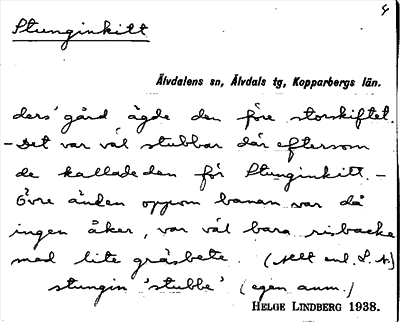 4
Stunginkitt
Älvdalens sn, Älvdals tg, Kopparbergs län.
ders' gård ägde den före storskiftet.
- Det var väl stubbar där eftersom
de kallade den för Stunginkitt. -
Övre änden oppom banan var då
ingen åker, var väl bara risbacke
med lite gräsbete. (Allt enl. S. A.)
stungin 'stubbe' (egen anm.)
HELGE LINDBERG 1938.